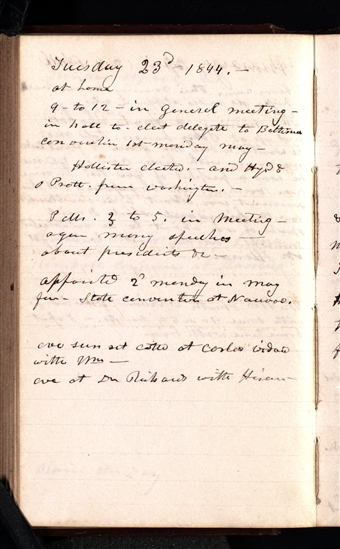 Tuesday 23d 1844. -
at home
9 - to 12 - in General meeting -
in hall to. elect delegate to Baltimore
convention 1st monday may -
Hollister elected. - and Hyde
O Pratt. from washington. -
P. M. 2 to 5. in Meeting -
again many speeches -
about presidents &c -
appointed 2d monday in may
for - State convention at Nauvoo.
eve sun set at
with Wm -
eve at Dr Richards with Hiram -